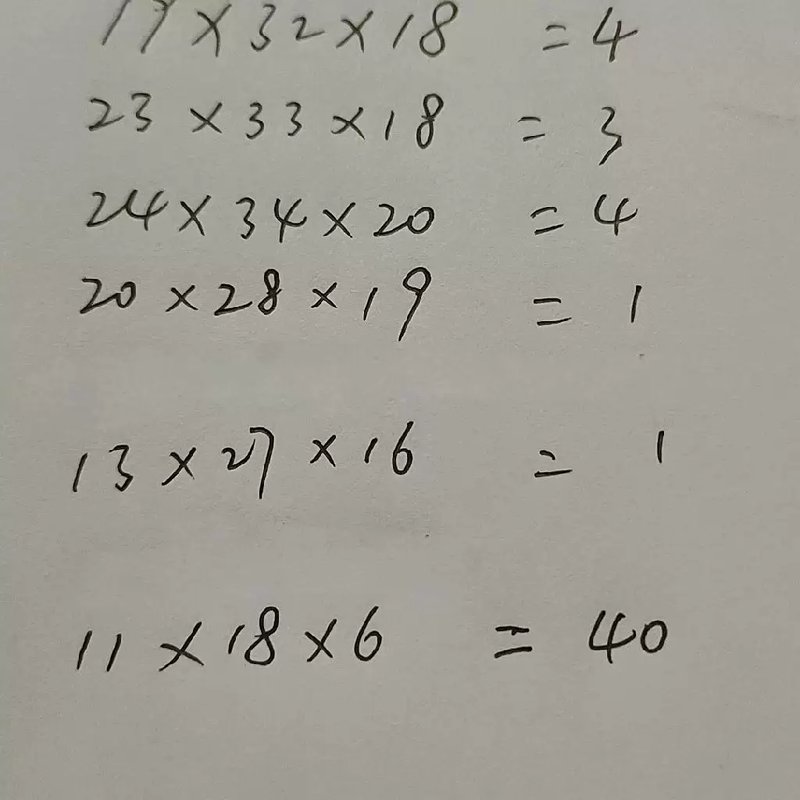 19 × 32 × 18 = 4
23 × 33 × 18 = 3
24 × 34 × 20 = 4
20 × 28 × 19 = 1
13 × 27 × 16 = 1
11 × 18 × 6 = 40